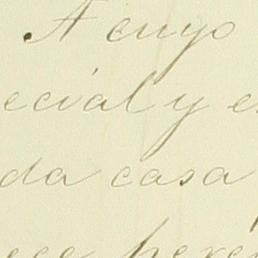 A cuyo
ecial y e
da casa